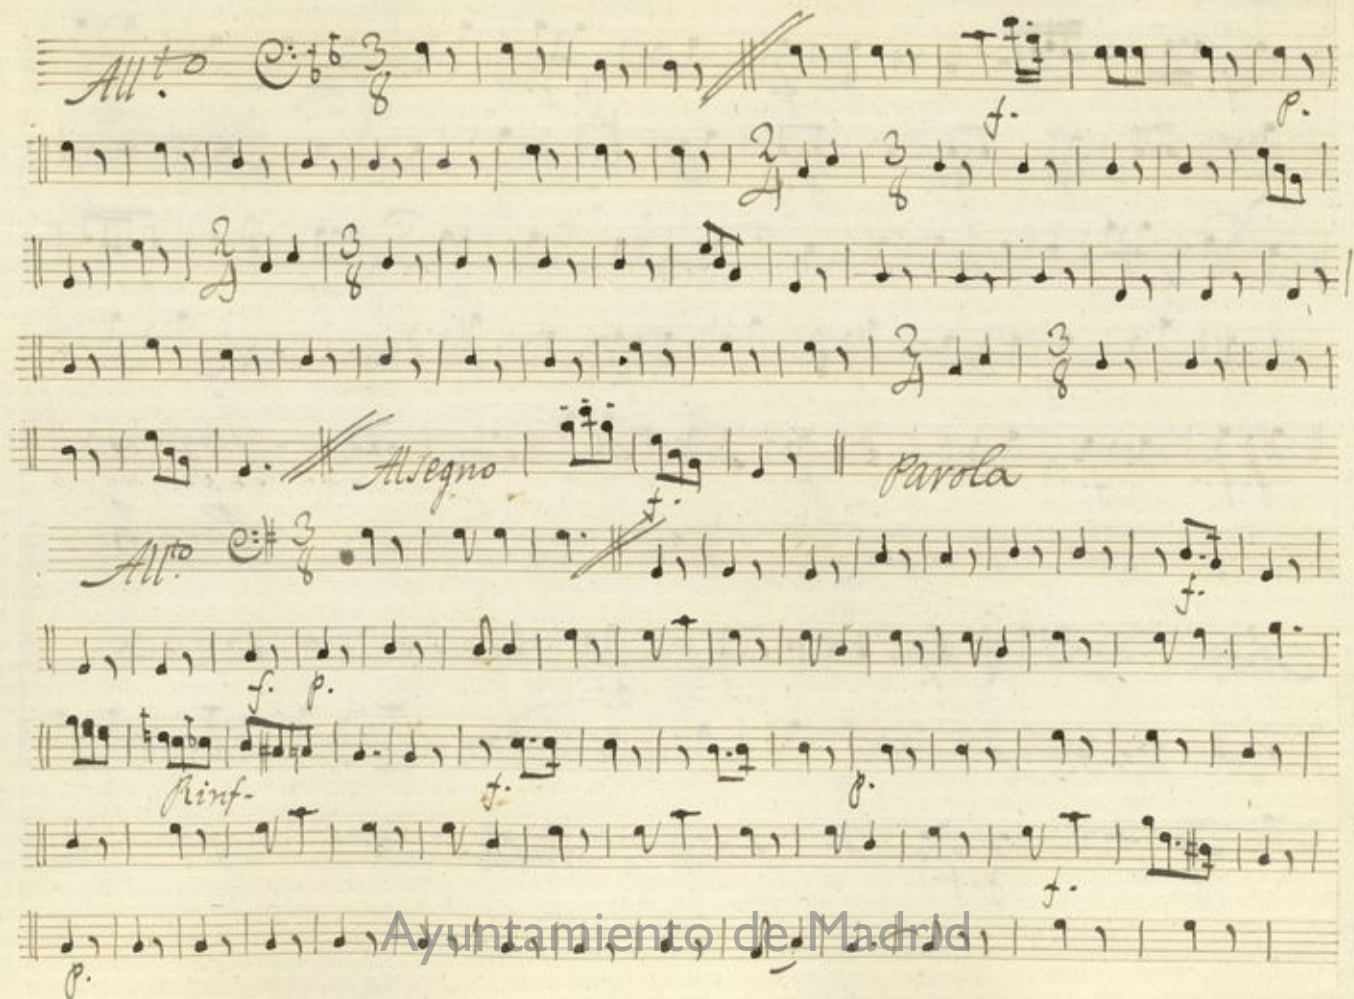 All.to 3 8
f. p.
2 4 3 8
2 4 3 8
2 4 3 8
Alsegno f. Parola
All.to 3 8
f.
f. p.
Rinf. f. p.
f.
p.
Ayuntamiento de Madrid